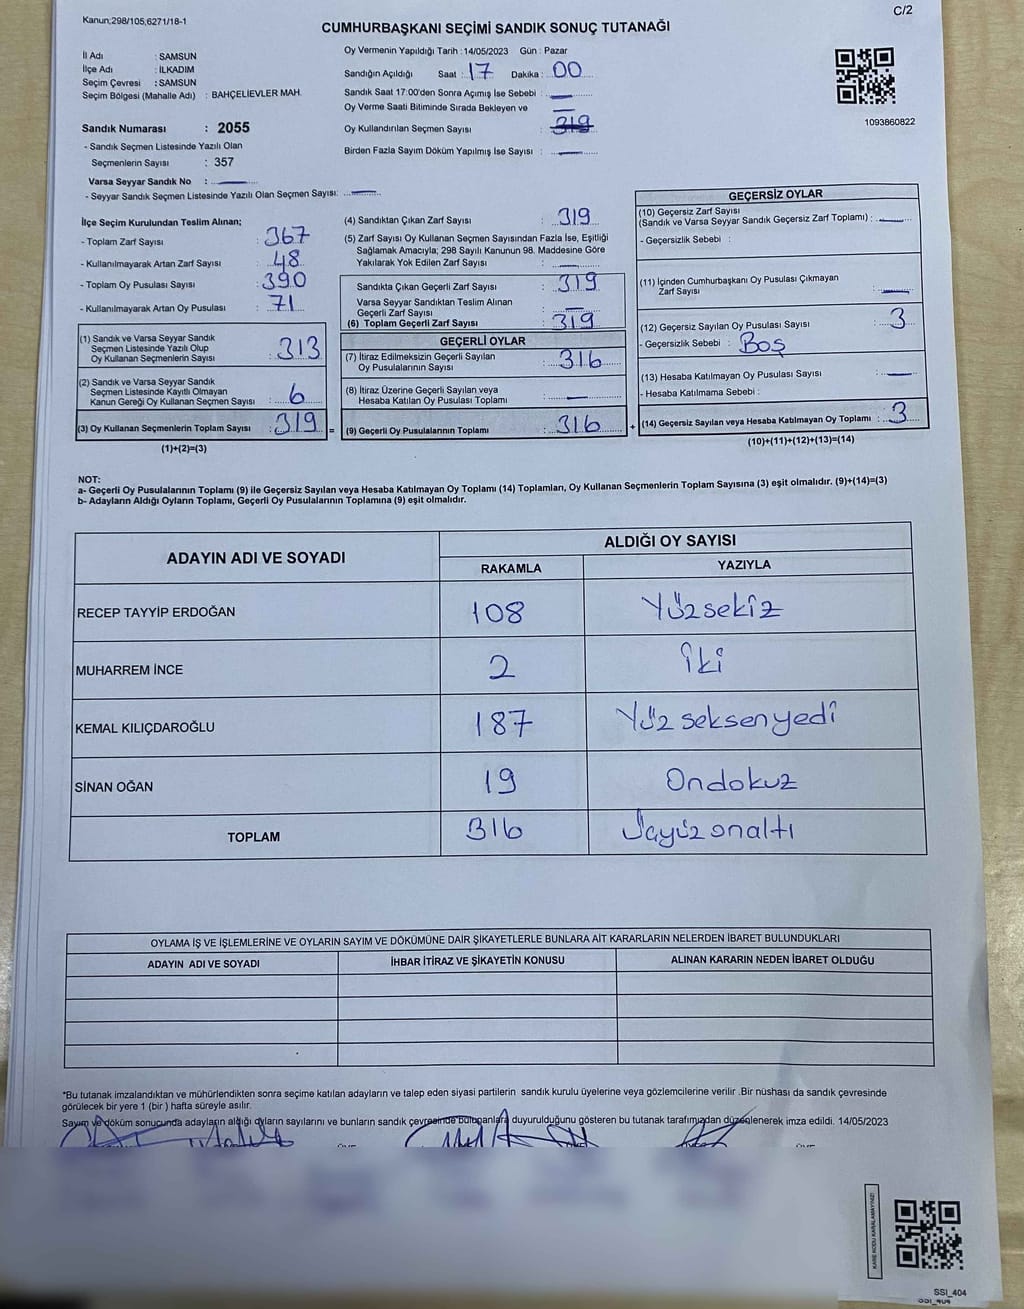 Kanun;298/105,6271/18-1
C/2
CUMHURBAŞKANI SEÇİMİ SANDIK SONUÇ TUTANAĞI
İl Adı : SAMSUN
İlçe Adı : İLKADIM
Seçim Çevresi : SAMSUN
Seçim Bölgesi (Mahalle Adı) : BAHÇELİEVLER MAH.
Sandık Numarası : 2055
- Sandık Seçmen Listesinde Yazılı Olan
Seçmenlerin Sayısı : 357
Varsa Seyyar Sandık No : —
- Seyyar Sandık Seçmen Listesinde Yazılı Olan Seçmen Sayısı: —
Oy Vermenin Yapıldığı Tarih : 14/05/2023 Gün : Pazar
Sandığın Açıldığı Saat : 17 Dakika : 00
Sandık Saat 17:00'den Sonra Açımış İse Sebebi : —
Oy Verme Saati Bitiminde Sırada Bekleyen ve —
Oy Kullandırılan Seçmen Sayısı : 319
Birden Fazla Sayım Döküm Yapılmış İse Sayısı : —
1093860822
İlçe Seçim Kurulundan Teslim Alınan;
- Toplam Zarf Sayısı : 367
- Kullanılmayarak Artan Zarf Sayısı : 48
- Toplam Oy Pusulası Sayısı : 390
- Kullanılmayarak Artan Oy Pusulası : 71
(1) Sandık ve Varsa Seyyar Sandık
Seçmen Listesinde Yazılı Olup
Oy Kullanan Seçmenlerin Sayısı : 313
(2) Sandık ve Varsa Seyyar Sandık
Seçmen Listesinde Kayıtlı Olmayan
Kanun Gereği Oy Kullanan Seçmen Sayısı : 6
(3) Oy Kullanan Seçmenlerin Toplam Sayısı : 319 =
(1)+(2)=(3)
(4) Sandıktan Çıkan Zarf Sayısı : 319
(5) Zarf Sayısı Oy Kullanan Seçmen Sayısından Fazla İse, Eşitliği
Sağlamak Amacıyla; 298 Sayılı Kanunun 98. Maddesine Göre
Yakılarak Yok Edilen Zarf Sayısı : —
Sandıkta Çıkan Geçerli Zarf Sayısı : 319
Varsa Seyyar Sandıktan Teslim Alınan
Geçerli Zarf Sayısı : —
(6) Toplam Geçerli Zarf Sayısı : 319
GEÇERLİ OYLAR
(7) İtiraz Edilmeksizin Geçerli Sayılan
Oy Pusulalarının Sayısı : 316
(8) İtiraz Üzerine Geçerli Sayılan veya
Hesaba Katılan Oy Pusulası Toplamı : —
(9) Geçerli Oy Pusulalarının Toplamı : 316 +
GEÇERSİZ OYLAR
(10) Geçersiz Zarf Sayısı
(Sandık ve Varsa Seyyar Sandık Geçersiz Zarf Toplamı) : —
- Geçersizlik Sebebi :
(11) İçinden Cumhurbaşkanı Oy Pusulası Çıkmayan
Zarf Sayısı : —
(12) Geçersiz Sayılan Oy Pusulası Sayısı : 3
- Geçersizlik Sebebi : Boş
(13) Hesaba Katılmayan Oy Pusulası Sayısı : —
- Hesaba Katılmama Sebebi :
(14) Geçersiz Sayılan veya Hesaba Katılmayan Oy Toplamı : 3
(10)+(11)+(12)+(13)=(14)
NOT:
a- Geçerli Oy Pusulalarının Toplamı (9) ile Geçersiz Sayılan veya Hesaba Katılmayan Oy Toplamı (14) Toplamları, Oy Kullanan Seçmenlerin Toplam Sayısına (3) eşit olmalıdır. (9)+(14)=(3)
b- Adayların Aldığı Oyların Toplamı, Geçerli Oy Pusulalarının Toplamına (9) eşit olmalıdır.
ADAYIN ADI VE SOYADI
ALDIĞI OY SAYISI
RAKAMLA YAZIYLA
RECEP TAYYİP ERDOĞAN 108 Yüzsekiz
MUHARREM İNCE 2 iki
KEMAL KILIÇDAROĞLU 187 Yüz seksen yedi
SİNAN OĞAN 19 Ondokuz
TOPLAM 316 Üçyüz onaltı
OYLAMA İŞ VE İŞLEMLERİNE VE OYLARIN SAYIM VE DÖKÜMÜNE DAİR ŞİKAYETLERLE BUNLARA AİT KARARLARIN NELERDEN İBARET BULUNDUKLARI
ADAYIN ADI VE SOYADI İHBAR İTİRAZ VE ŞİKAYETİN KONUSU ALINAN KARARIN NEDEN İBARET OLDUĞU
*Bu tutanak imzalandıktan ve mühürlendikten sonra seçime katılan adayların ve talep eden siyasi partilerin sandık kurulu üyelerine veya gözlemcilerine verilir .Bir nüshası da sandık çevresinde
görülecek bir yere 1 (bir ) hafta süreyle asılır.
Sayım ve döküm sonucunda adayların aldığı oyların sayılarını ve bunların sandık çevresinde bulunanlara duyurulduğunu gösteren bu tutanak tarafımızdan düzenlenerek imza edildi. 14/05/2023
KARE KODU KARALAMAYINIZ!
SSI_404
SSI_404